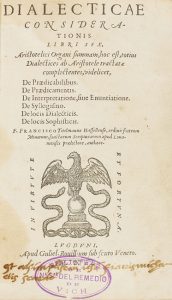 DIALECTICAE
CONSIDERA-
TIONIS
LIBRI SEX,
Aristotelici Organi summam, hoc est, totius
Dialectices ab Aristotele tractatæ
complectentes, videlicet,
De Prædicabilibus.
De Prædicamentis.
De Interpretatione, siue Enuntiatione.
De Syllogismo.
De locis Dialecticis.
De locis Sophisticis.
F. FRANCISCO Titelmanno Hassellensi, ordinis fratrum
Minorum, sanctarum Scripturarum apud Loua-
nienses prælectore, authore.
IN VIRTVTE
ET FORTVNA
LVGDVNI,
Apud Guliel. Rouillium sub scuto Veneto.
DEL REMEDIO
VICH